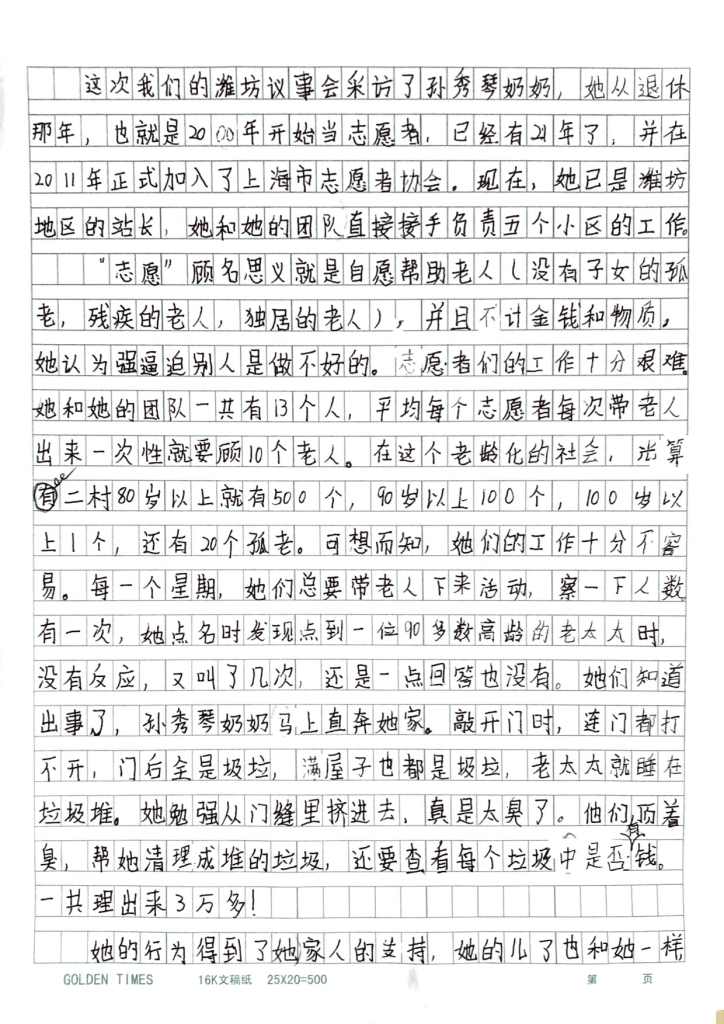 这次我们的潍坊议事会采访了孙秀琴奶奶，她从退休
那年，也就是2000年开始当志愿者，已经有21年了，并在
2011年正式加入了上海市志愿者协会。现在，她已是潍坊
地区的站长，她和她的团队直接接手负责五个小区的工作。
“志愿”顾名思义就是自愿帮助老人（没有子女的孤
老，残疾的老人，独居的老人），并且不计金钱和物质。
她认为强逼迫别人是做不好的。志愿者们的工作十分艰难。
她和她的团队一共有13个人，平均每个志愿者每次带老人
出来一次性就要顾10个老人。在这个老龄化的社会，光算
有二村80岁以上就有500个，90岁以上100个，100岁以
上1个，还有20个孤老。可想而知，她们的工作十分不容
易。每一个星期，她们总要带老人下来活动，察一下人数
有一次，她点名时发现点到一位90多数高龄的老太太时，
没有反应，又叫了几次，还是一点回答也没有。她们知道
出事了，孙秀琴奶奶马上直奔她家。敲开门时，连门都打
不开，门后全是圾垃，满屋子也都是圾垃，老太太就睡在
垃圾堆。她勉强从门缝里挤进去，真是太臭了。他们顶着
臭，帮她清理成堆的垃圾，还要查看每个垃圾中是否有钱。
一共理出来3万多！
她的行为得到了她家人的支持，她的儿了也和她一样
GOLDEN TIMES 16K文稿纸 25X20=500 第 页